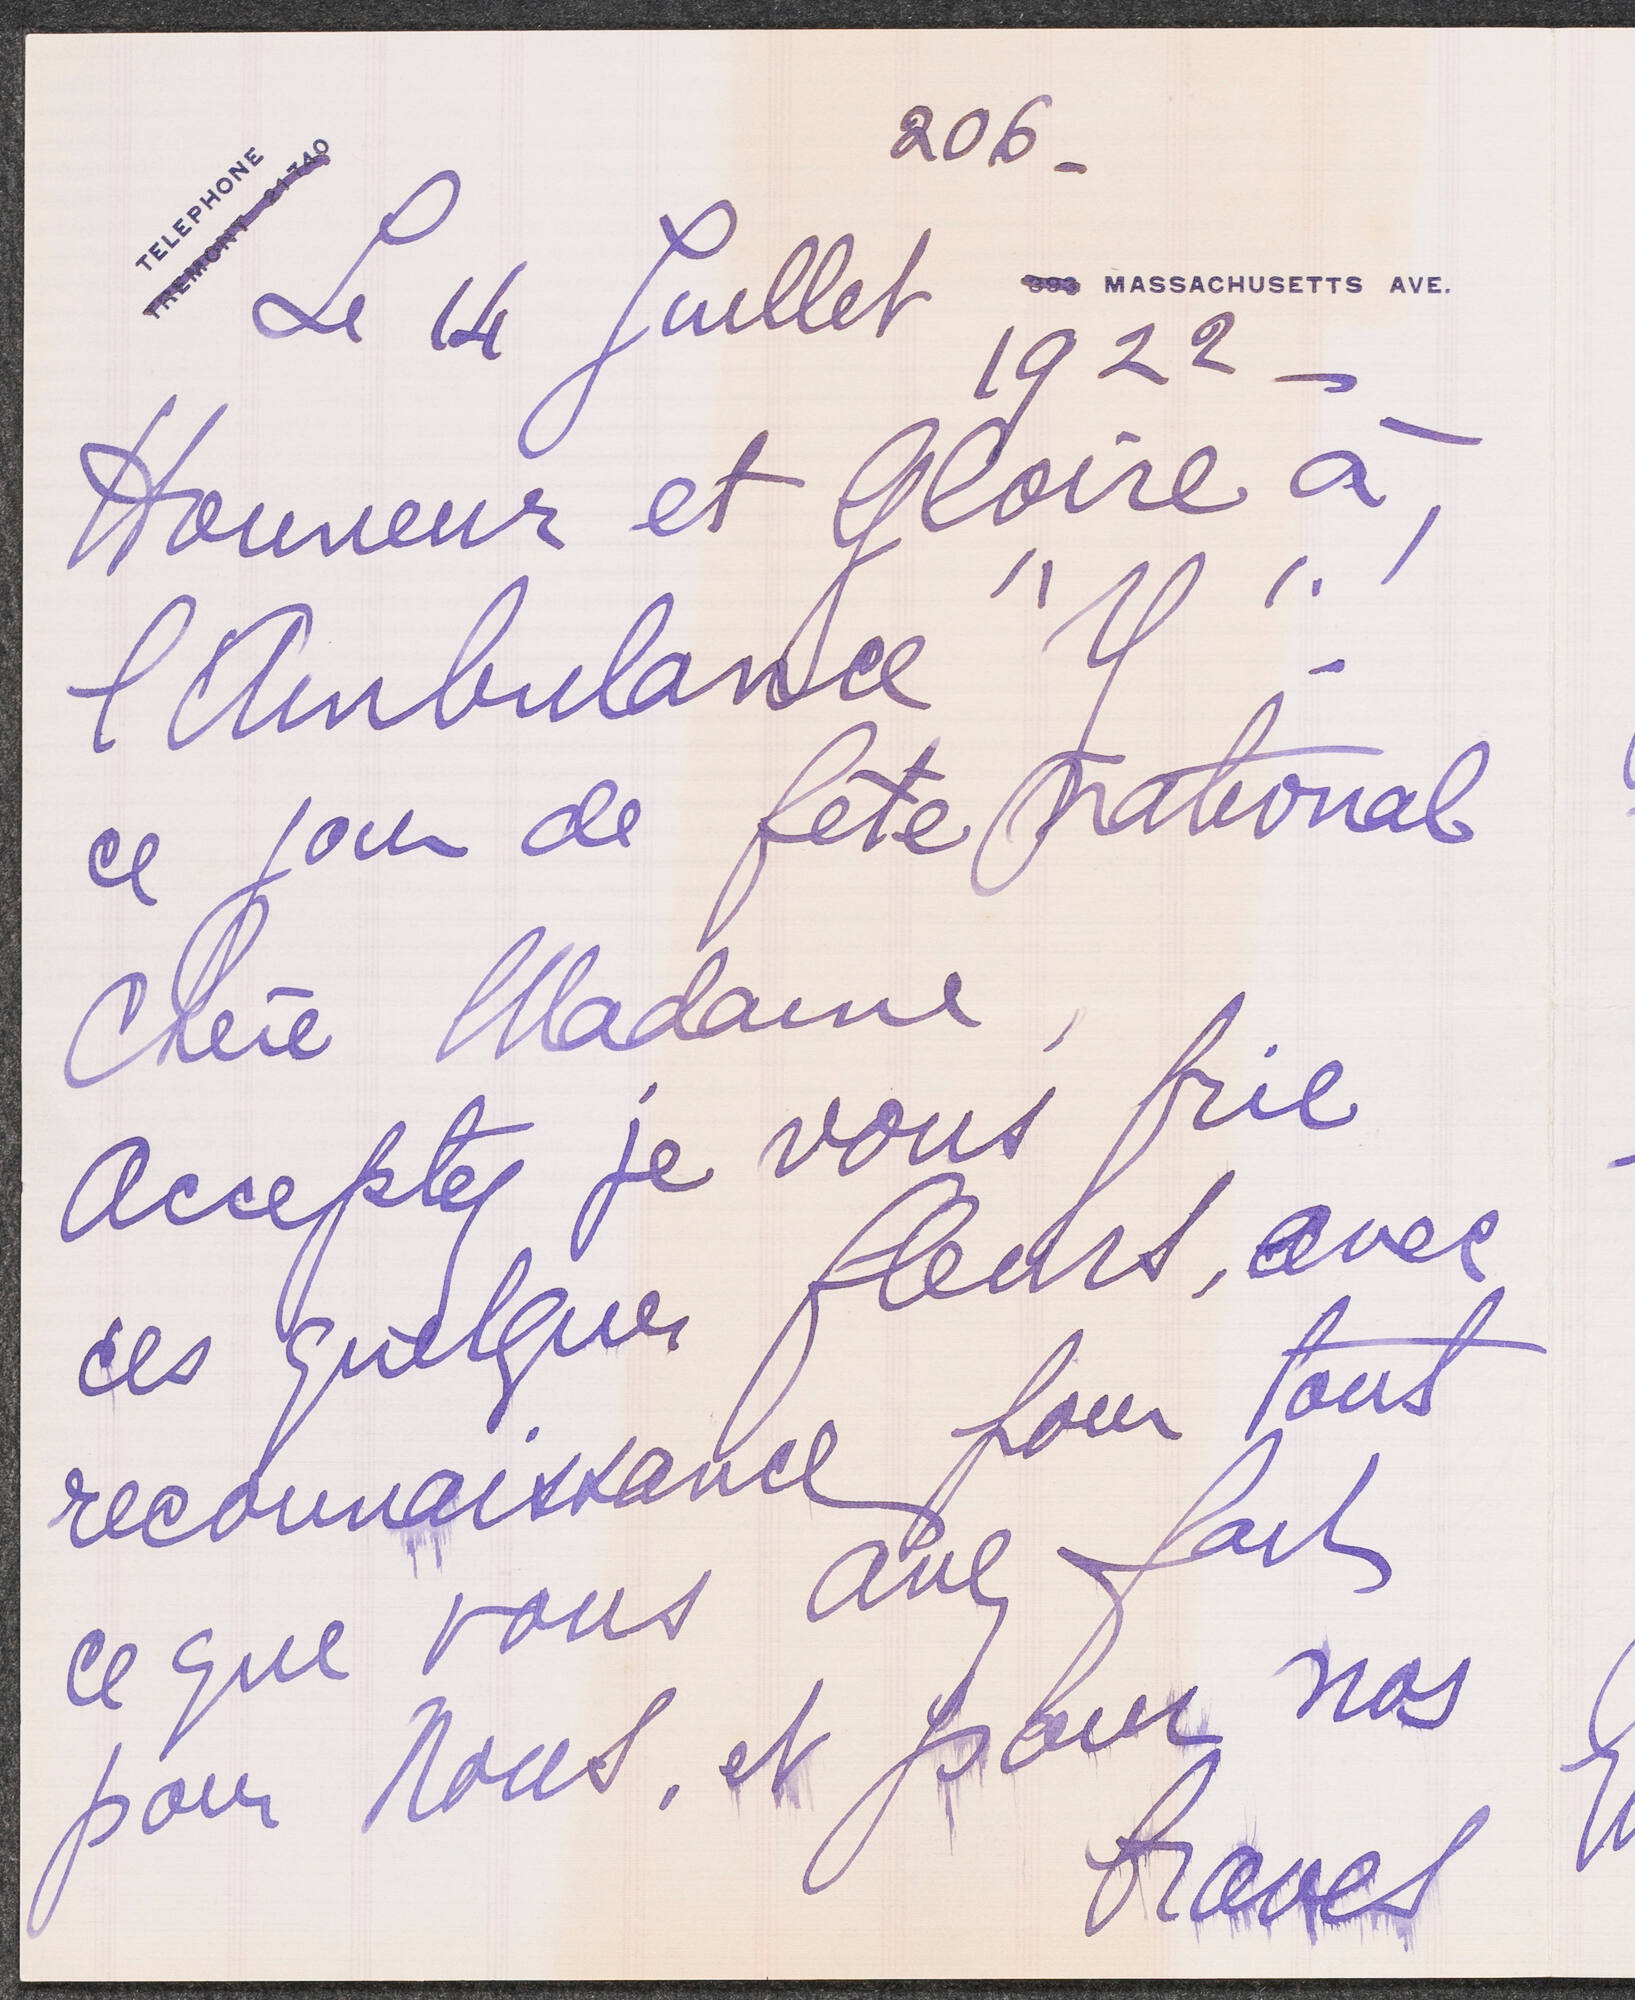 206-
TELEPHONE
TREMONT 21740
393 MASSACHUSETTS AVE.
Le 14 Juillet
1922-
Honneur et Gloire à,
l'Ambulance "Y".!
ce jour de fête National
Chère Madame,
Acceptez je vous prie
ces quelques fleurs, avec
reconnaissance pour tout
ce que vous avez fait
pour Nous, et pour nos
braves